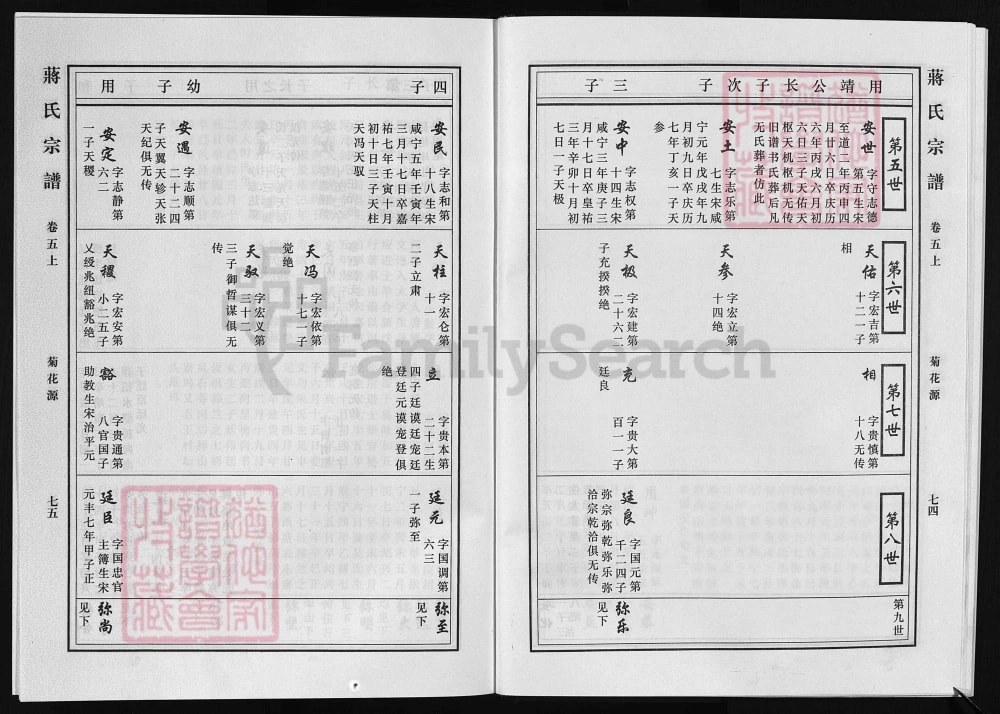 蔣氏宗譜
卷五上
菊花源
七四
用靖公长子
次子
三子
第五世
安世 字守志德
第五生宋
至道二年丙申四
月廿六日卒庆历
六年丙戌六月初
六日三子天佑天
枢天机枢机无传
旧谱书氏葬后凡
无氏葬者仿此
安土 字志乐第
七生宋咸
宁元年戊戌年九
月初九日卒庆历
七年丁亥一子天
参
安中 字志权第
十四生宋
咸宁三年庚子三
月十七日卒皇祐
三年辛卯十月初
七日一子天极
第六世
天佑 字宏吉第
十二一子
相
天参 字宏立第
十四绝
天极 字宏建第
二十六二
子充揆揆绝
第七世
相 字贵慎第
十八无传
充 字贵大第
百一一子
廷良
第八世
廷良 字国元第
千二四子
弥宗弥乾弥乐弥
洽宗乾洽俱无传
第九世
弥乐
见下
四子
幼子
用
安民 字志和第
十八生宋
咸宁五年壬寅年
三月十七日卒嘉
祐七年壬寅十月
初十日三子天柱
天冯天驭
安遇 字志顺第
二十二四
子天翼天轸天张
天纪俱无传
安定 字志静第
六二
一子天稷
天柱 字宏仑第
十一
二子立肃
天冯 字宏依第
十七一子
觉绝
天驭 字宏义第
三十二
三子御哲谋俱无
传
天稷 字宏安第
小二五子
乂绶兆纽豁兆绝
立 字贵本第
二十二生
四子廷谟廷宠廷
登廷元谟宠登俱
绝
豁 字贵通第
八官国子
助教生宋治平元
廷元 字国调第
六三
一子弥至
廷臣 字国忠官
主簿生宋
元丰七年甲子正
弥至
见下
弥尚
见下
蔣氏宗譜
卷五上
菊花源
七五
FamilySearch